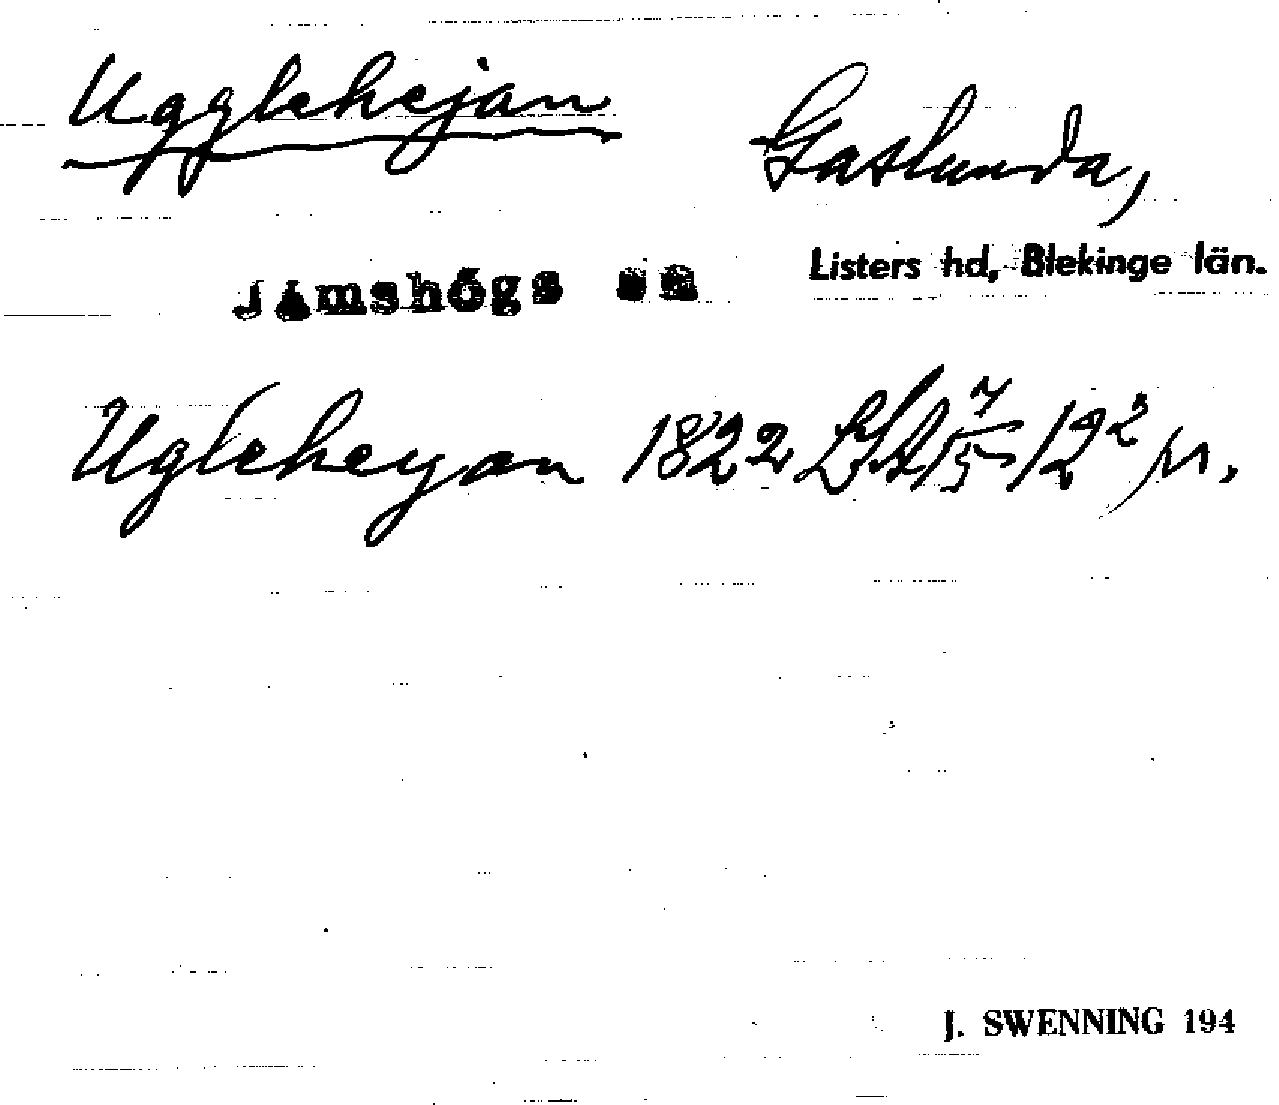 Ugglehejan Gaslunda,
Jämshögs sn Listers hd, Blekinge län.
Ugleheyan 1822
J. SWENNING 194